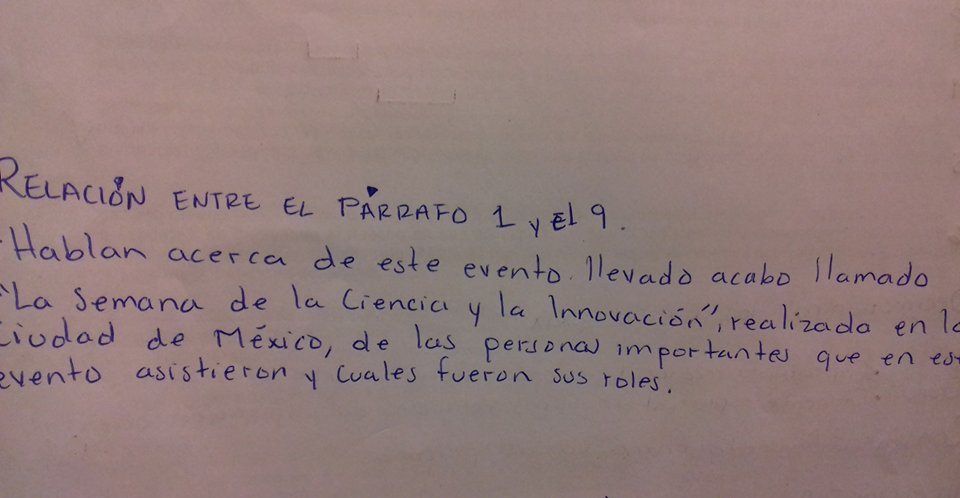 RELACIÓN ENTRE EL PÁRRAFO 1 y El 9.
Hablan acerca de este evento llevado acabo llamado
"La Semana de la Ciencia y la Innovación", realizada en la
Ciudad de México, de las personas importantes que en est
evento asistieron y cuales fueron sus roles.